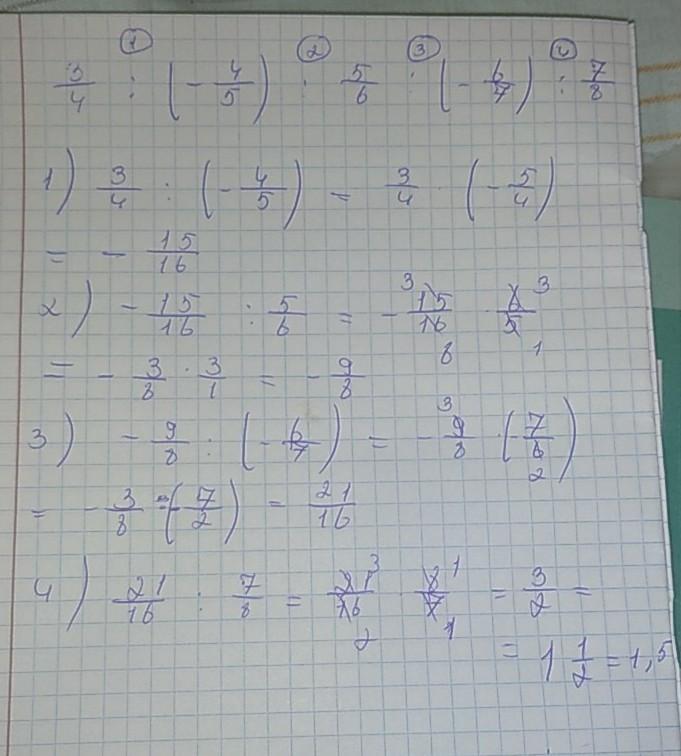 ① ② ③ ④
3/4 : (- 4/5) : 5/6 : (- 6/7) : 7/8
1) 3/4 : (- 4/5) = 3/4 · (- 5/4)
= - 15/16
2) - 15/16 : 5/6 = - 15/16 · 6/5 3 3 8 1
= - 3/8 · 3/1 = - 9/8
3) - 9/8 : (- 6/7) = - 9/8 · (- 7/6) 3 2
= - 3/8 · (- 7/2) = 21/16
4) 21/16 : 7/8 = 21/16 · 8/7 3 1 2 1 = 3/2 =
= 1 1/2 = 1,5